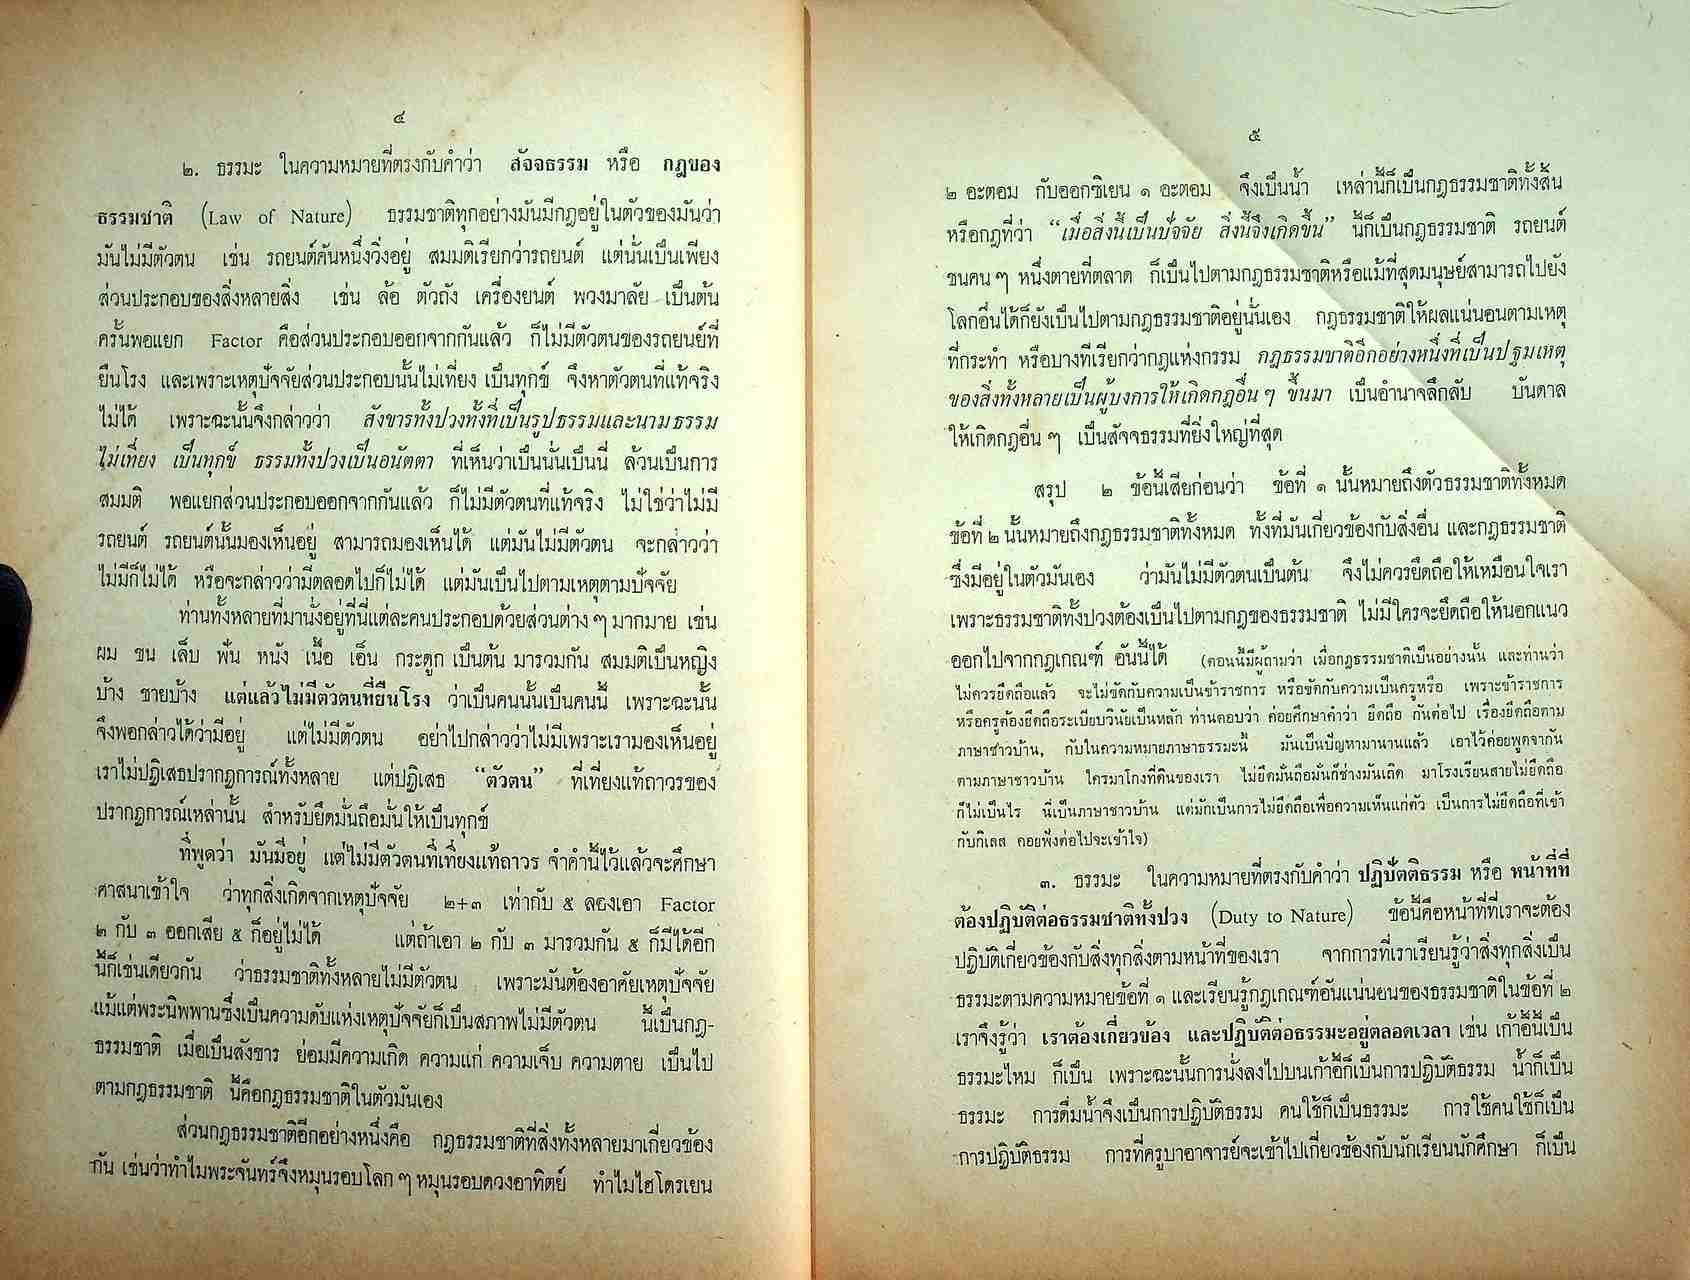 ๔
๒. ธรรมะ ในความหมายที่ตรงกับคำว่า สัจจธรรม หรือ กฎของ
ธรรมชาติ (Law of Nature) ธรรมชาติทุกอย่างมันมีกฎอยู่ในตัวของมันว่า
มันไม่มีตัวตน เช่น รถยนต์คันหนึ่งวิ่งอยู่ สมมติเรียกว่ารถยนต์ แต่นั่นเป็นเพียง
ส่วนประกอบของสิ่งหลายสิ่ง เช่น ล้อ ตัวถัง เครื่องยนต์ พวงมาลัย เป็นต้น
ครั้นพอแยก Factor คือส่วนประกอบออกจากกันแล้ว ก็ไม่มีตัวตนของรถยนย์ที่
ยืนโรง และเพราะเหตุปัจจัยส่วนประกอบนั้นไม่เที่ยง เป็นทุกข์ จึงหาตัวตนที่แท้จริง
ไม่ได้ เพราะฉะนั้นจึงกล่าวว่า สังขารทั้งปวงทั้งที่เป็นรูปธรรมและนามธรรม
ไม่เที่ยง เป็นทุกข์ ธรรมทั้งปวงเป็นอนัตตา ที่เห็นว่าเป็นนั่นเป็นนี่ ล้วนเป็นการ
สมมติ พอแยกส่วนประกอบออกจากกันแล้ว ก็ไม่มีตัวตนที่แท้จริง ไม่ใช่ว่าไม่มี
รถยนต์ รถยนต์นั้นมองเห็นอยู่ สามารถมองเห็นได้ แต่มันไม่มีตัวตน จะกล่าวว่า
ไม่มีก็ไม่ได้ หรือจะกล่าวว่ามีตลอดไปก็ไม่ได้ แต่มันเป็นไปตามเหตุตามปัจจัย
ท่านทั้งหลายที่มานั่งอยู่ที่นี่แต่ละคนประกอบด้วยส่วนต่าง ๆ มากมาย เช่น
ผม ขน เล็บ ฟัน หนัง เนื้อ เอ็น กระดูก เป็นต้น มารวมกัน สมมติเป็นหญิง
บ้าง ชายบ้าง แต่แล้วไม่มีตัวตนที่ยืนโรง ว่าเป็นคนนั้นเป็นคนนี้ เพราะฉะนั้น
จึงพอกล่าวได้ว่ามีอยู่ แต่ไม่มีตัวตน อย่าไปกล่าวว่าไม่มีเพราะเรามองเห็นอยู่
เราไม่ปฏิเสธปรากฏการณ์ทั้งหลาย แต่ปฏิเสธ “ตัวตน” ที่เที่ยงแท้ถาวรของ
ปรากฏการณ์เหล่านั้น สำหรับยึดมั่นถือมั่นให้เป็นทุกข์
ที่พูดว่า มันมีอยู่ แต่ไม่มีตัวตนที่เที่ยงแท้ถาวร จำคำนี้ไว้แล้วจะศึกษา
ศาสนาเข้าใจ ว่าทุกสิ่งเกิดจากเหตุปัจจัย ๒+๓ เท่ากับ ๕ ลองเอา Factor
๒ กับ ๓ ออกเสีย ๕ ก็อยู่ไม่ได้ แต่ถ้าเอา ๒ กับ ๓ มารวมกัน ๕ ก็มีได้อีก
นี้ก็เช่นเดียวกัน ว่าธรรมชาติทั้งหลายไม่มีตัวตน เพราะมันต้องอาศัยเหตุปัจจัย
แม้แต่พระนิพพานซึ่งเป็นความดับแห่งเหตุปัจจัยก็เป็นสภาพไม่มีตัวตน นี้เป็นกฎ-
ธรรมชาติ เมื่อเป็นสังขาร ย่อมมีความเกิด ความแก่ ความเจ็บ ความตาย เป็นไป
ตามกฎธรรมชาติ นี้คือกฎธรรมชาติในตัวมันเอง
ส่วนกฎธรรมชาติอีกอย่างหนึ่งคือ กฎธรรมชาติที่สิ่งทั้งหลายมาเกี่ยวข้อง
กัน เช่นว่าทำไมพระจันทร์จึงหมุนรอบโลก ๆ หมุนรอบดวงอาทิตย์ ทำไมไฮโดรเยน
๕
๒ อะตอม กับออกซิเยน ๑ อะตอม จึงเป็นน้ำ เหล่านี้ก็เป็นกฎธรรมชาติทั้งสิ้น
หรือกฎที่ว่า “เมื่อสิ่งนี้เป็นปัจจัย สิ่งนี้จึงเกิดขึ้น” นี้ก็เป็นกฎธรรมชาติ รถยนต์
ชนคน ๆ หนึ่งตายที่ตลาด ก็เป็นไปตามกฎธรรมชาติหรือแม้ที่สุดมนุษย์สามารถไปยัง
โลกอื่นได้ก็ยังเป็นไปตามกฎธรรมชาติอยู่นั่นเอง กฎธรรมชาติให้ผลแน่นอนตามเหตุ
ที่กระทำ หรือบางทีเรียกว่ากฎแห่งกรรม กฎธรรมชาติอีกอย่างหนึ่งที่เป็นปฐมเหตุ
ของสิ่งทั้งหลายเป็นผู้บงการให้เกิดกฎอื่น ๆ ขึ้นมา เป็นอำนาจลึกลับ บันดาล
ให้เกิดกฎอื่น ๆ เป็นสัจจธรรมที่ยิ่งใหญ่ที่สุด
สรุป ๒ ข้อนี้เสียก่อนว่า ข้อที่ ๑ นั้นหมายถึงตัวธรรมชาติทั้งหมด
ข้อที่ ๒ นั้นหมายถึงกฎธรรมชาติทั้งหมด ทั้งที่มันเกี่ยวข้องกับสิ่งอื่น และกฎธรรมชาติ
ซึ่งมีอยู่ในตัวมันเอง ว่ามันไม่มีตัวตนเป็นต้น จึงไม่ควรยึดถือให้เหมือนใจเรา
เพราะธรรมชาติทั้งปวงต้องเป็นไปตามกฎของธรรมชาติ ไม่มีใครจะยึดถือให้นอกแนว
ออกไปจากกฎเกณฑ์ อันนี้ได้ (ตอนนี้มีผู้ถามว่า เมื่อกฎธรรมชาติเป็นอย่างนั้น และท่านว่า
ไม่ควรยึดถือแล้ว จะไม่ขัดกับความเป็นข้าราชการ หรือขัดกับความเป็นครูหรือ เพราะข้าราชการ
หรือครูต้องยึดถือระเบียบวินัยเป็นหลัก ท่านตอบว่า ค่อยศึกษาคำว่า ยึดถือ กันต่อไป เรื่องยึดถือตาม
ภาษาชาวบ้าน, กับในความหมายภาษาธรรมะนี้ มันเป็นปัญหามานานแล้ว เอาไว้ค่อยพูดจากัน
ตามภาษาชาวบ้าน ใครมาโกงที่ดินของเรา ไม่ยึดมั่นถือมั่นก็ช่างมันเถิด มาโรงเรียนสายไม่ยึดถือ
ก็ไม่เป็นไร นี่เป็นภาษาชาวบ้าน แต่มักเป็นการไม่ยึดถือเพื่อความเห็นแก่ตัว เป็นการไม่ยึดถือที่เข้า
กับกิเลส คอยฟังต่อไปจะเข้าใจ)
๓. ธรรมะ ในความหมายที่ตรงกับคำว่า ปฏิบัตติธรรม หรือ หน้าที่ที่
ต้องปฏิบัติต่อธรรมชาติทั้งปวง (Duty to Nature) ข้อนี้คือหน้าที่ที่เราจะต้อง
ปฏิบัติเกี่ยวข้องกับสิ่งทุกสิ่งตามหน้าที่ของเรา จากการที่เราเรียนรู้ว่าสิ่งทุกสิ่งเป็น
ธรรมะตามความหมายข้อที่ ๑ และเรียนรู้กฎเกณฑ์อันแน่นอนของธรรมชาติในข้อที่ ๒
เราจึงรู้ว่า เราต้องเกี่ยวข้อง และปฏิบัติต่อธรรมะอยู่ตลอดเวลา เช่น เก้าอี้นี้เป็น
ธรรมะไหม ก็เป็น เพราะฉะนั้นการนั่งลงไปบนเก้าอี้ก็เป็นการปฏิบัติธรรม น้ำก็เป็น
ธรรมะ การดื่มน้ำจึงเป็นการปฏิบัติธรรม คนใช้ก็เป็นธรรมะ การใช้คนใช้ก็เป็น
การปฏิบัติธรรม การที่ครูบาอาจารย์จะเข้าไปเกี่ยวข้องกับนักเรียนนักศึกษา ก็เป็น